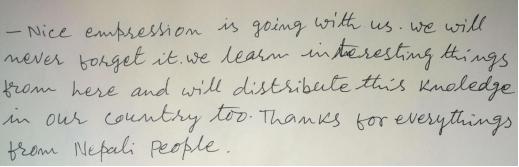 - Nice empression is going with us. we will
never forget it. we learn interesting things
from here and will distribute this knoledge
in our country too. Thanks for everythings
from Nepali people.